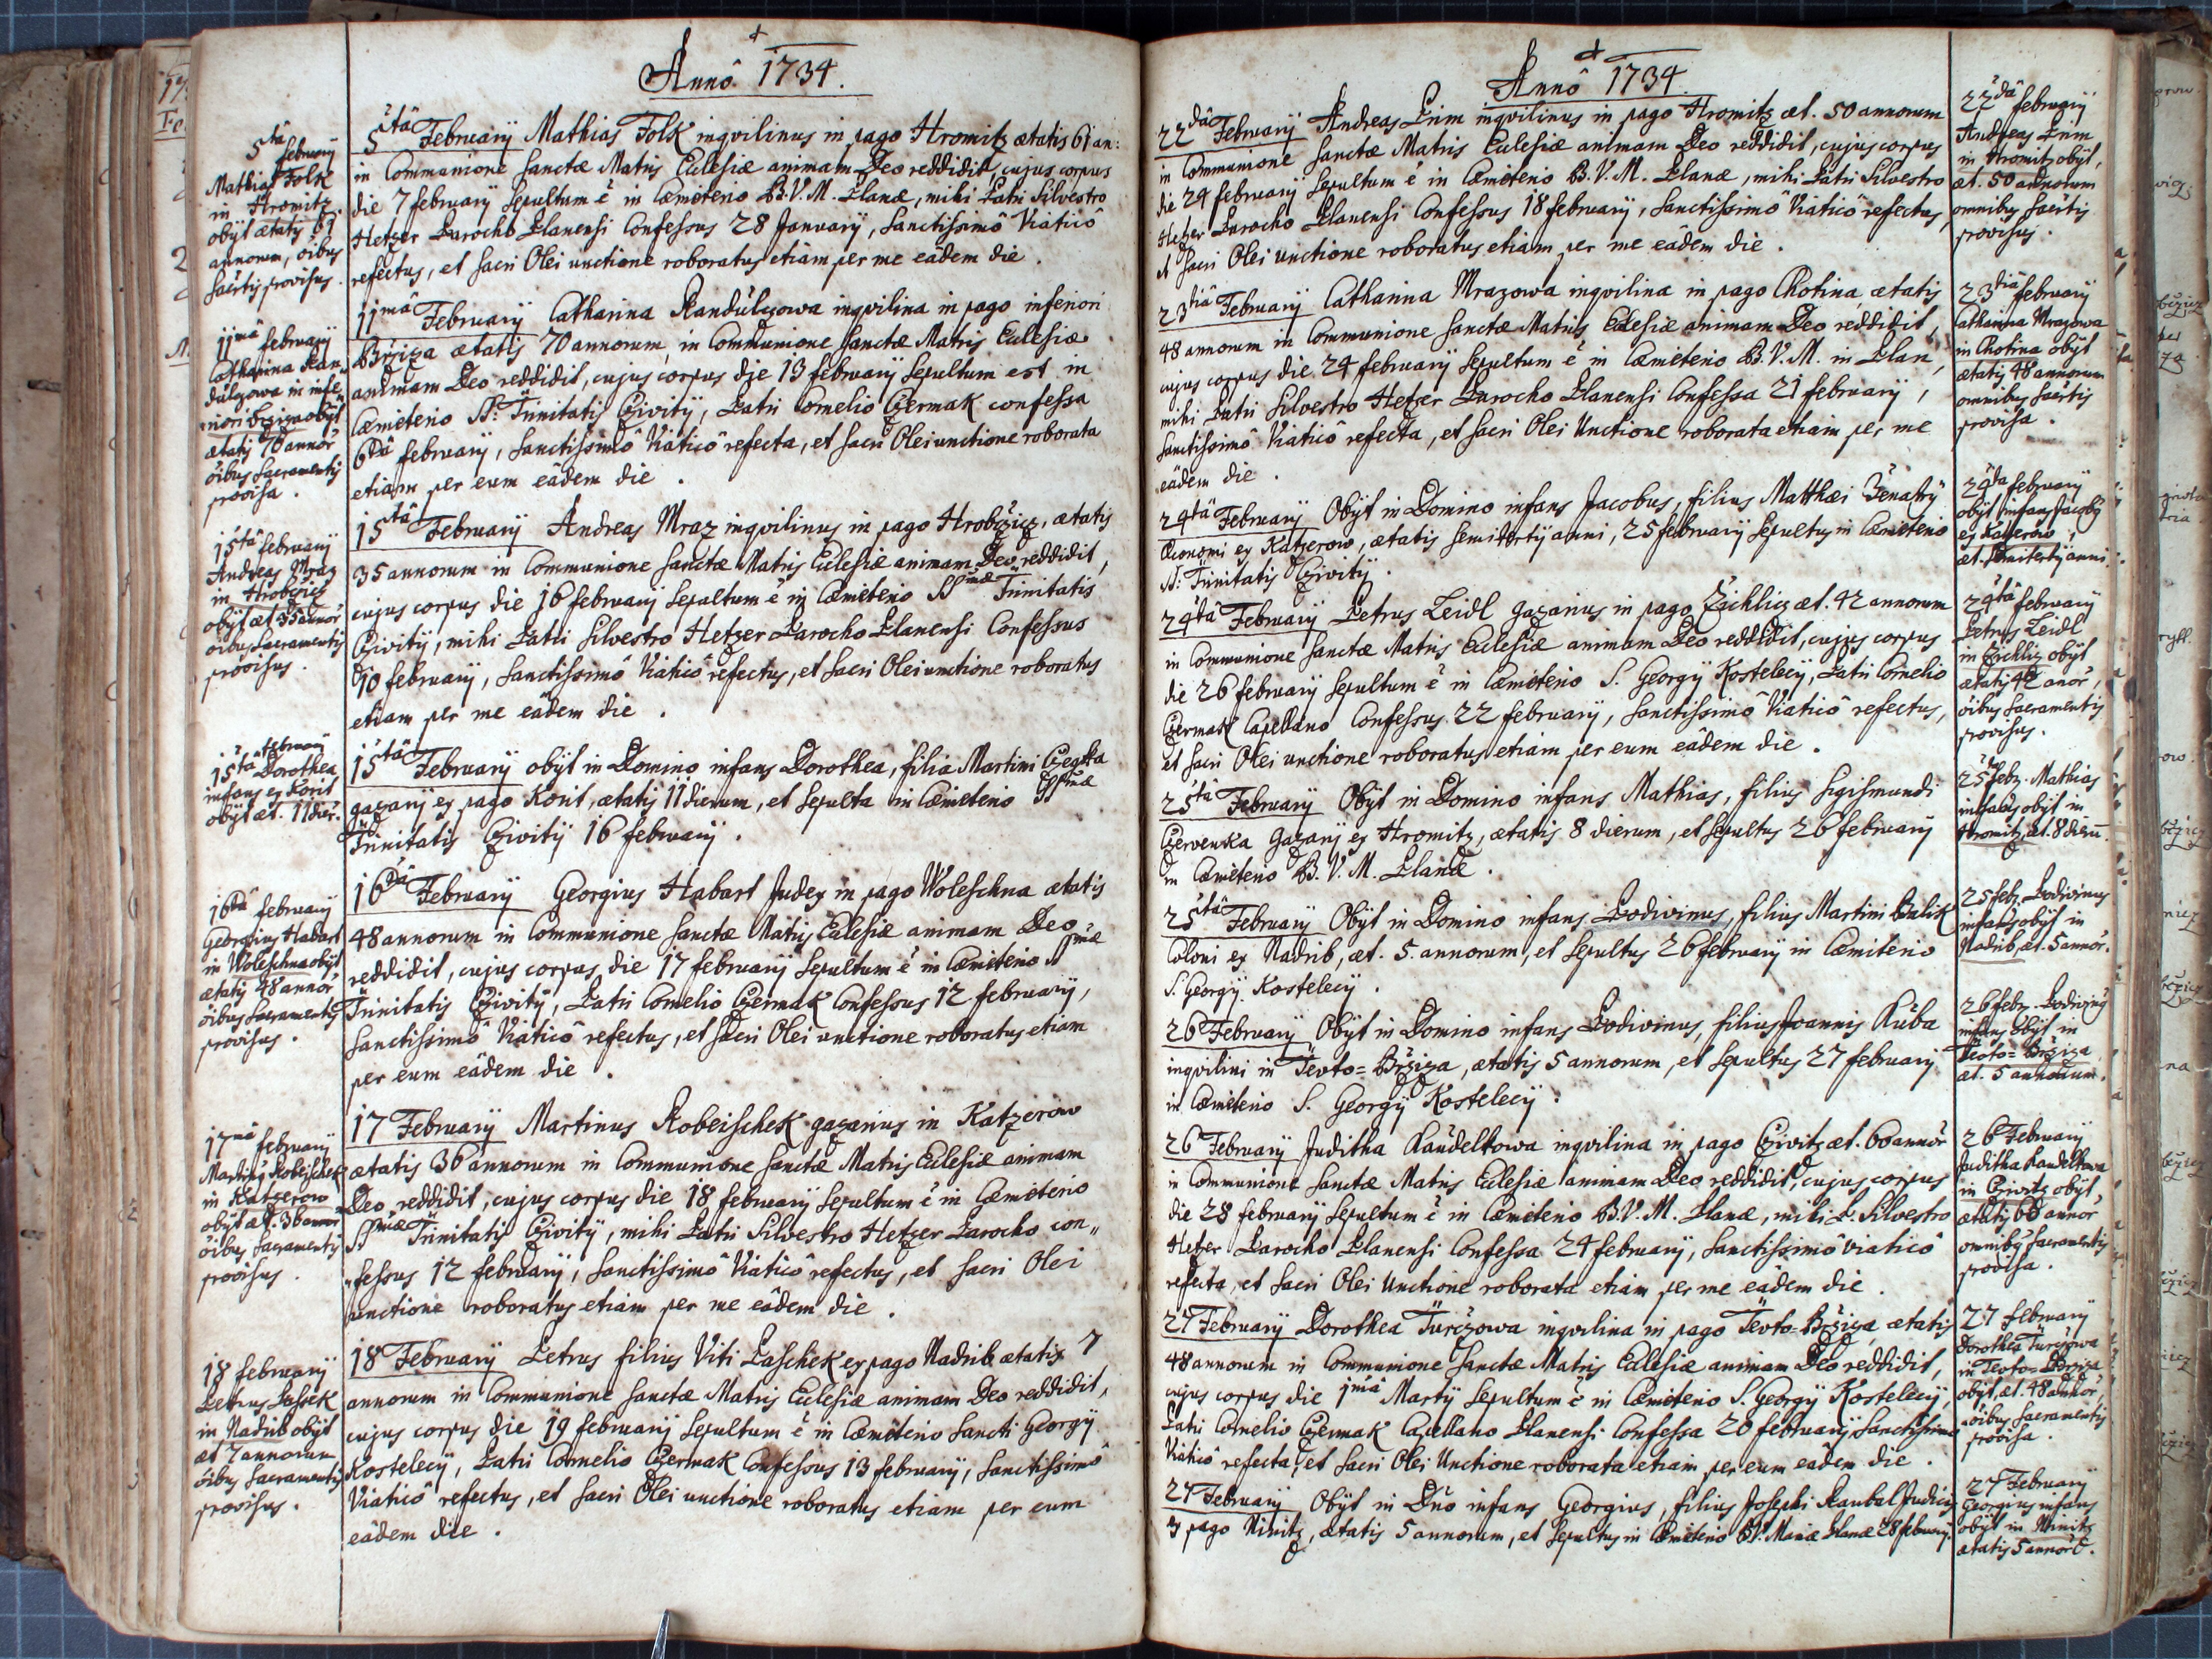 Annô 1734.
5tâ february
Mathias Folk
in Hromitz
obÿt ætatis 61
annorum, oibus
sac̃rtis provisus.
5tâ Februarÿ Mathias Folk inqvilinus in pago Hromitz ætatis 61 an:
in Communione sanctæ Matris Eclesiæ animam Deo reddidit, cujus corpus
die 7 februarÿ sepultum ē in Cæmeterio B.V.M. Planæ, mihi Patri Silvestro
Hetzer Parocho Planensi Confessus 28 Januarÿ, Sanctissimô Viaticô
refectus, et sacri Olei unctione roboratus etiam per me eâdem die.
11mâ februarÿ
Catharina Ran-
dulzowa in infe-
riori Brziza obÿt
ætatis 70 annor̃
oibus Sacramentis
provisa.
11mâ Februarÿ Catharina Randulzowa inqvilina in pago inferiori
Brziza ætatis 70 annorum, in Communione sanctæ Matris Eclesiæ
animam Deo reddidit, cujus corpus die 13 februarÿ sepultum est in
Cæmeterio SS: Trinitatis Czivitÿ, Patri Cornelio Czermak confessa
6tâ februarÿ, Sanctissimô Viaticô refecta, et sacri Olei unctione roborata
etiam per eum eâdem die.
15tâ februarÿ
Andreas Mraz
in Hrobczicz
obÿt æt. 35 annor̃
oibus Sacramentis
provisus.
15tâ Februarÿ Andreas Mraz inqvilinus in pago Hrobczicz, ætatis
35 annorum in Communione sanctæ Matris Eclesiæ animam Deo reddidit,
cujus corpus die 16 februarÿ sepultum ē in Cæmeterio SSmæ Trinitatis
Czivitÿ, mihi Patri Silvestro Hetzer Parocho Planensi Confessus
10 februarÿ, Sanctissimô Viaticô refectus, et sacri Olei unctione roboratus
etiam per me eâdem die.
15tâ februarÿ
Dorothea
infans ex Korit
obÿt æt. 11 dier̃.
15tâ Februarÿ obÿt in Domino infans Dorothea, filia Martini
gazarÿ ex pago Korit, ætatis 11 dierum, et sepulta in Cæmeterio SSmæ
Trinitatis Czivitÿ 16 februarÿ.
16tâ februarÿ
Georgius Habart
in Woleschna obÿt
ætatis 48 annor̃
oibus Sacramentis
provisus.
16tâ Februarÿ Georgius Habart Judex in pago Woleschna ætatis
48 annorum in Communione sanctæ Matris Eclesiæ animam Deo
reddidit, cujus corpus, die 17 februarÿ sepultum ē in Cæmeterio SSmæ
Trinitatis Czivitÿ, Patri Cornelio Czermak Confessus 12 februarÿ,
Sanctissimô Viaticô refectus, et sacri Olei unctione roboratus etiam
per eum eâdem die.
17mâ februarÿ
Martinus Robeischek
in Katzerow
obÿt æt. 36 annor̃
oibus Sacramentis
provisus.
17 Februarÿ Martinus Robeischek gazarius in Katzerow
ætatis 36 annorum in Communione sanctæ Matris Eclesiæ animam
Deo reddidit, cujus corpus die 18 februarÿ sepultum ē in Cæmeterio
SSmæ Trinitatis Czivitÿ, mihi Patri Silvestro Hetzer Parocho con„
„fessus 12 februarÿ, Sanctissimô Viaticô refectus, et sacri Olei
unctione roboratus etiam per me eâdem die.
18 februarÿ
Petrus Passek
in Nadrib obÿt
æt 7 annorum
oibus Sacramentis
provisus.
18 Februarÿ Petrus filius Viti Paschek ex pago Nadrib ætatis 7
annorum in Communione sanctæ Matris Eclesiæ animam Deo reddidit,
cujus corpus die 19 februarÿ sepultum ē in Cæmeterio Sancti Georgÿ
Kostelecÿ, Patri Cornelio Czermak Confessus 13 februarÿ, Sanctissimô
Viaticô refectus, et sacri Olei unctione roboratus etiam per eum
eâdem die.
Annô 1734.
22dâ Februarÿ Andreas Prim inqvilinus in pago Hromitz æt. 50 annorum
in Communione sanctæ Matris Eclesiæ animam Deo reddidit, cujus corpus
die 24 februarÿ sepultum ē in Cæmeterio B.V.M. Planæ, mihi Patri Silvestro
Hetzer Parocho Planensi Confessus 18 februarÿ, Sanctissimô Viaticô refectus,
et sacri Olei unctione roboratus etiam per me eâdem die.
22dâ februarÿ
Andreas Prim
in Hromitz obÿt,
æt. 50 annorum
omnibus sac̃rtis
provisus.
23tiâ Februarÿ Catharina Mrazowa inqvilina in pago Chotina ætatis
48 annorum in Communione sanctæ Matris Eclesiæ animam Deo reddidit,
cujus corpus die 24 februarÿ sepultum ē in Cæmeterio B.V.M. in Plan,
mihi Patri Silvestro Hetzer Parocho Planensi Confessa 21 februarÿ,
Sanctissimô Viaticô refecta, et sacri Olei Unctione roborata etiam per me
eâdem die.
23tiâ februarÿ
Catharina Mrazowa
in Chotina obÿt
ætatis 48 annorum
omnibus sac̃rtis
provisa.
24tâ Februarÿ Obÿt in Domino infans Jacobus, filius Matthæi Zenatÿ
Œconomi ex Katzerow, ætatis semitertÿ anni, 25 februarÿ sepultus in Cæmeterio
SS: Trinitatis Czivitÿ.
24tâ februarÿ
obÿt infans Jacobus
ex Katzerow,
æt. semitertÿ anni.
24tâ Februarÿ Petrus Zeidl gazarius in pago Zichlicz æt. 42 annorum
in Communione sanctæ Matris Eclesiæ animam Deo reddidit, cujus corpus
die 26 februarÿ sepultum ē in Cæmeterio S. Georgÿ Kostelecÿ, Patri Cornelio
Czermak Capellano Confessus 22 februarÿ, Sanctissimô Viaticô refectus,
et sacri Olei unctione roboratus etiam per eum eâdem die.
24tâ februarÿ
Petrus Zeidl
in Zichliz obÿt
ætatis 42 anor̃,
oibus Sacramentis
provisus.
25tâ Februarÿ Obÿt in Domino infans Mathias, filius Sigismundi
Czervenka Gazarÿ ex Hromitz, ætatis 8 dierum, et sepultus 26 februarÿ
in Cæmeterio B.V.M. Planæ.
25 febr. Mathias
infans obÿt in
Hromitz, æt. 8 dierū
25tâ Februarÿ Obÿt in Domino infans Lodivinus, filius Martini Balik
Coloni ex Nadrib, æt. 5. annorum, et sepultus 26 februarÿ in Cæmiterio
S. Georgÿ Kostelecÿ.
25 febr. Lodivinus
infans obÿt in
Nadrib, æt. 5 annor̃.
26 Februarÿ Obÿt in Domino infans Lodivinus, filius Joannis Kuba
inqvilini in Tevto=Brziza, ætatis 5 annorum, et sepultus 27 februarÿ
in Cæmeterio S. Georgÿ Kostelecÿ.
26 febr. Lodivinus
infans obÿt in
Tevto=Brziza
æt. 5 annorum.
26 Februarÿ Juditha Kaudeltowa inqvilina in pago Czivitz æt. 60 annor̃
in Communione sanctæ Matris Eclesiæ animam Deo reddidit, cujus corpus
die 28 februarÿ sepultum ē in Cæmeterio B.V.M. Planæ, mihi P. Silvestro
Hetzer Parocho Planensi Confessa 24 februarÿ, Sanctissimô viaticô
refecta, et sacri Olei Unctione roborata etiam per me eâdem die.
26 Februarÿ
Juditha Kaudeltowa
in Czivitz obÿt,
ætatis 60 annor̃
omnibus sacramentis
provisa.
27 Februarÿ Dorothea Turczowa inqvilina in pago Tevto=Brziza, ætatis
48 annorum in Communione Sanctæ Matris Eclesiæ animam Deo reddidit,
cujus corpus die 1mâ Martÿ sepultum ē in Cæmeterio S. Georgÿ Kostelecÿ,
Patri Cornelio Czermak Capellano Planensi Confessa 20 februarÿ Sanctissimô
Viaticô refecta, et sacri Olei Unctione roborata etiam per eum eâdem die.
27 februarÿ
Dorothea Turczowa
in Tevto=Brziza
obÿt, æt. 48 annor̃,
oibus Sacramentis
provisa.
27 Februarÿ Obÿt in Dño infans Georgius, filius Josephi Raubal Judicis
ex pago Ninitz, ætatis 5 annorum, et sepultus in Cæmeterio B.V. Mariæ Planæ 28 februarÿ.
27 Februarÿ
Georgius infans
obÿt in Ninitz
ætatis 5 annor̃.